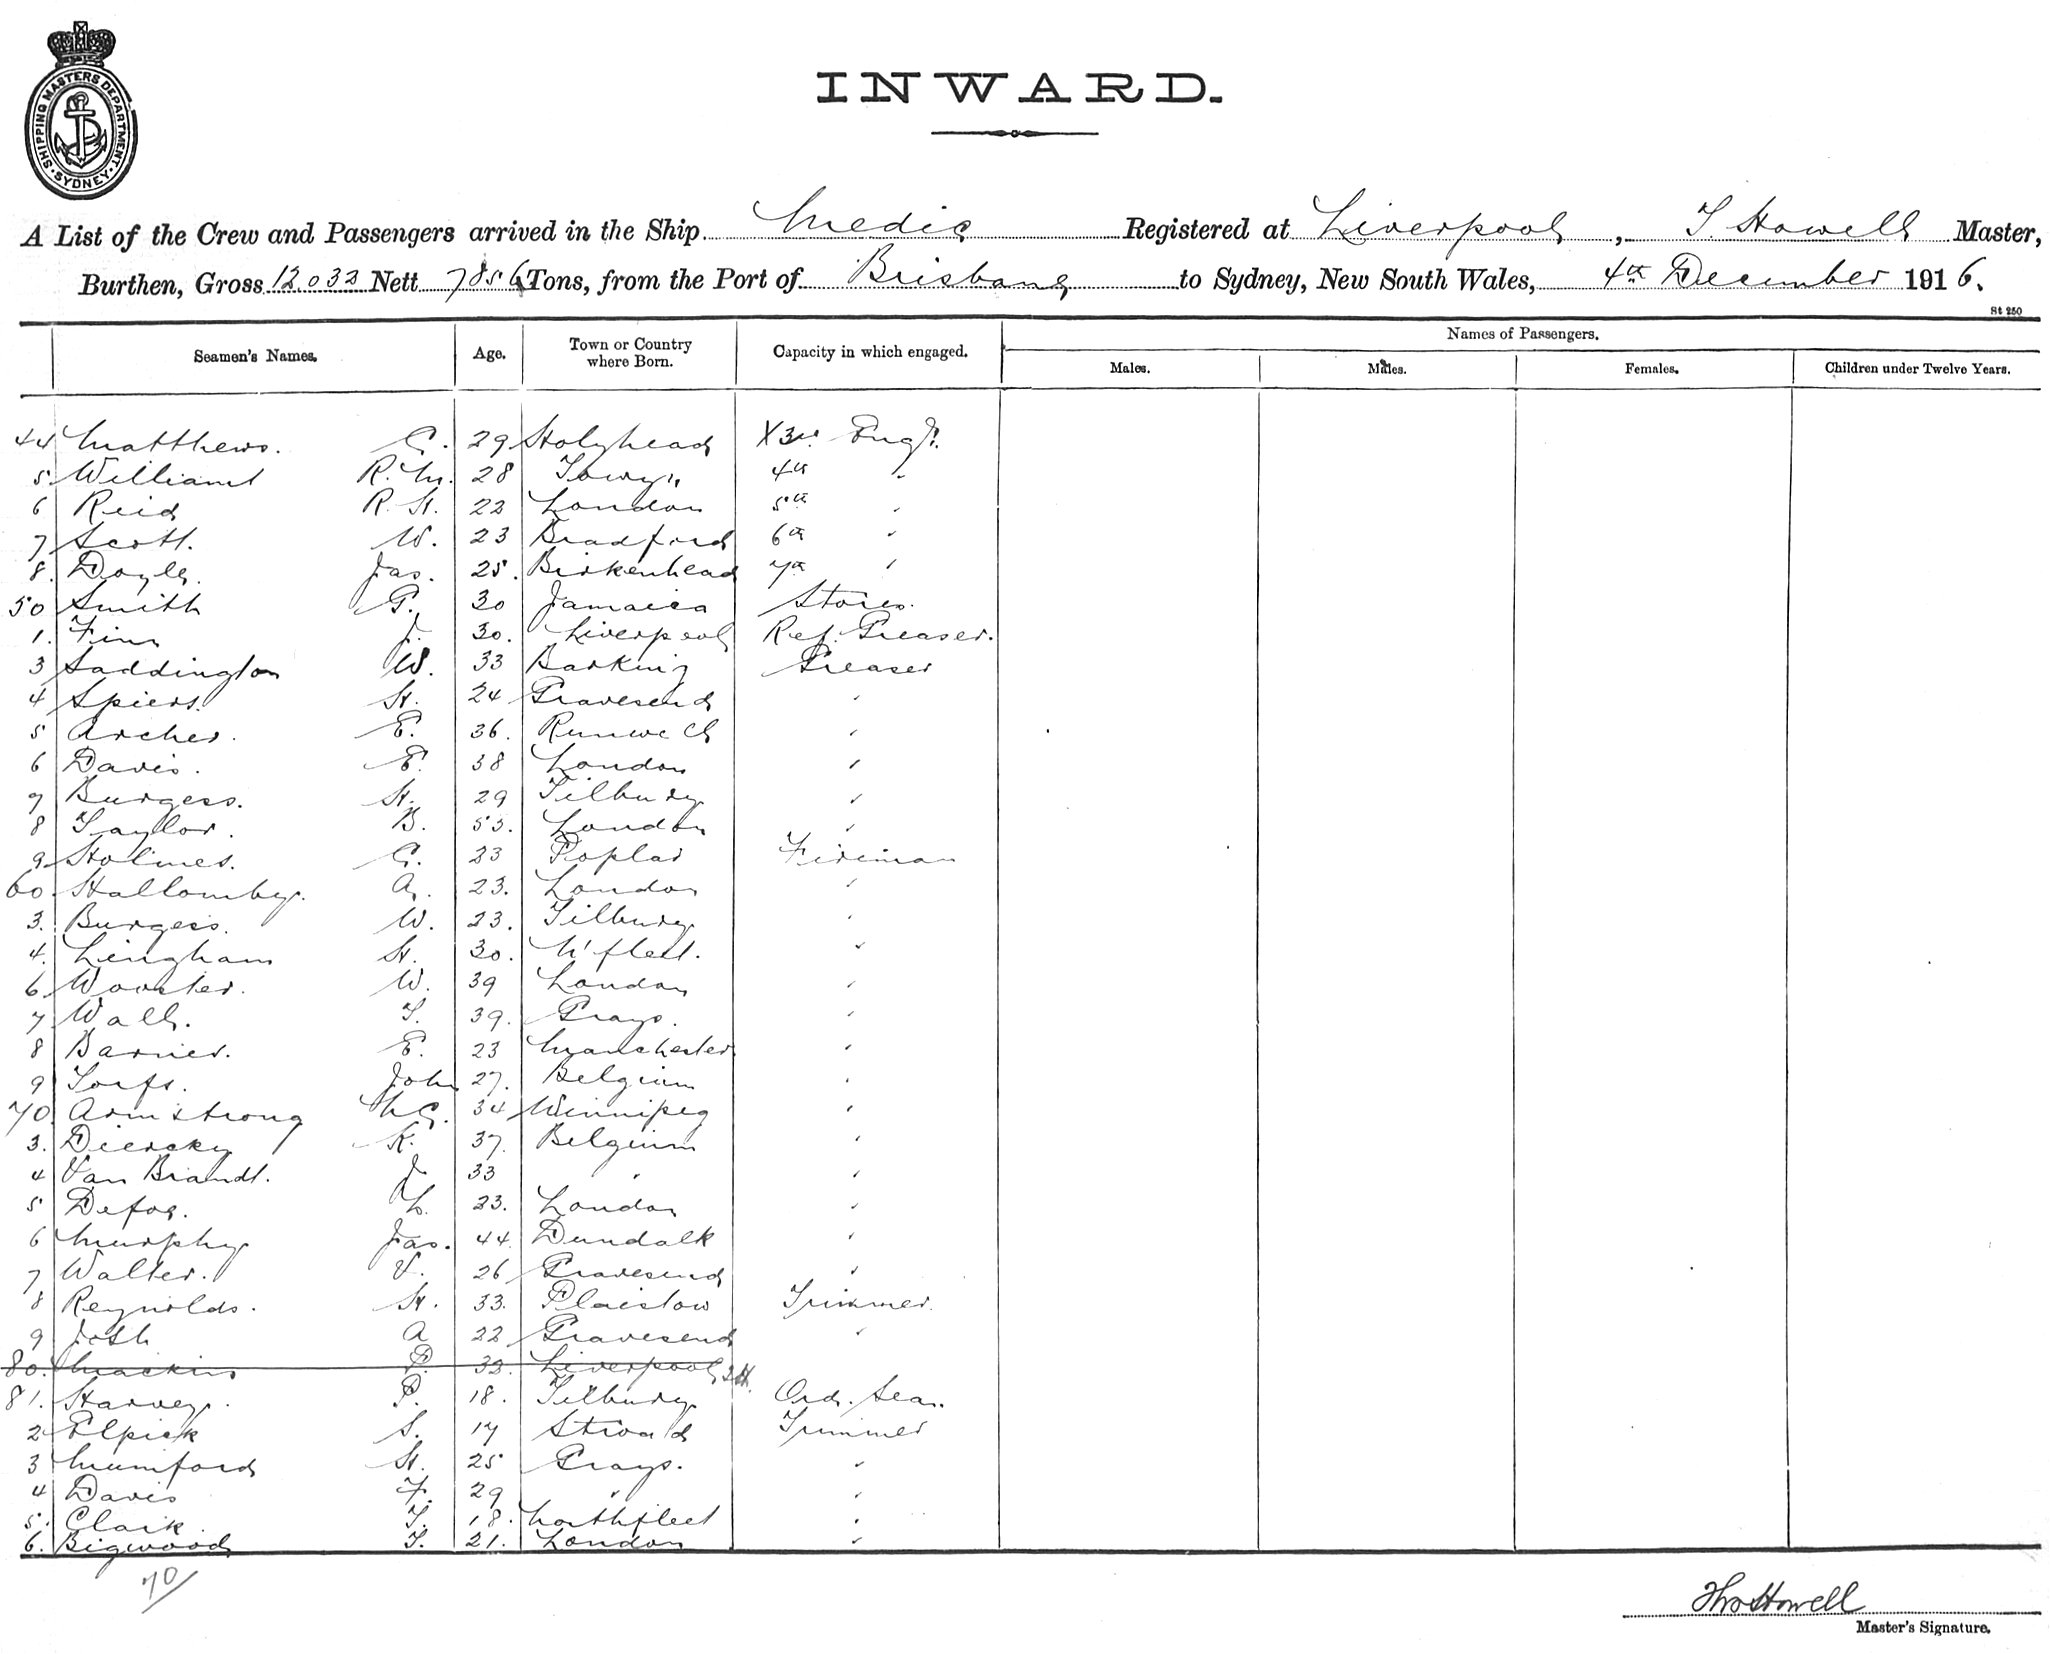 SHIPPING MASTERS DEPARTMENT
SYDNEY
INWARD.
A List of the Crew and Passengers arrived in the Ship Medic Registered at Liverpool, T. Howell Master,
Burthen, Gross 12,032 Nett 7856 Tons, from the Port of Brisbane to Sydney, New South Wales, 4th December 1916.
St 250
Seamen's Names. Age. Town or Country where Born. Capacity in which engaged. Names of Passengers.
Males. Males. Females. Children under Twelve Years.
44 Matthews. C. 29 Holyhead X3rd Engr.
5 Williams R. M. 28 Towyn 4th "
6 Reid R. H. 22 London 5th "
7 Scott. W. 23 Bradford 6th "
8. Doyle. Jas. 25. Birkenhead 7th "
50 Smith G. 30 Jamaica Stores.
1. Finn J. 30. Liverpool Ref. Greaser.
3 Saddington W. 33 Barking Greaser
4 Spiers. H. 24 Gravesend "
5 Archer. E. 36. Runwell "
6 Davis. E. 38 London "
7 Burgess. H. 29 Tilbury "
8 Taylor. B. 53. London "
9 Holmes. C. 23 Poplar Fireman
60. Hallomby. A. 23. London "
3. Burgess. W. 23. Tilbury "
4. Lingham H. 30. N'fleet. "
6 Wooster. W. 39 London "
7 Wall. T. 39. Grays. "
8 Barnes. E. 23 Manchester "
9 Torfs. John 27. Belgium "
70. Armstrong W C. 34 Winnipeg "
3. Dierckx K. 37. Belgium "
4 Van Brandt. J. 33 " "
5 Defoe. L. 23. London "
6 Murphy Jas. 44. Dundalk "
7 Walter. V. 26 Gravesend "
8 Reynolds. H. 33. Plaistow Trimmer.
9 Joth A 22 Gravesend "
80. Mackin P. 33. Liverpool
81. Harvey. P. 18. Tilbury Ord. Sea.
2 Elpick S. 17 Strood Trimmer
3 Mumford H. 25 Grays. "
4 Davis F. 29 " "
5. Clark. T. 18. Northfleet "
6. Bigwood T. 21. London "
70/
Thos Howell
Master's Signature.